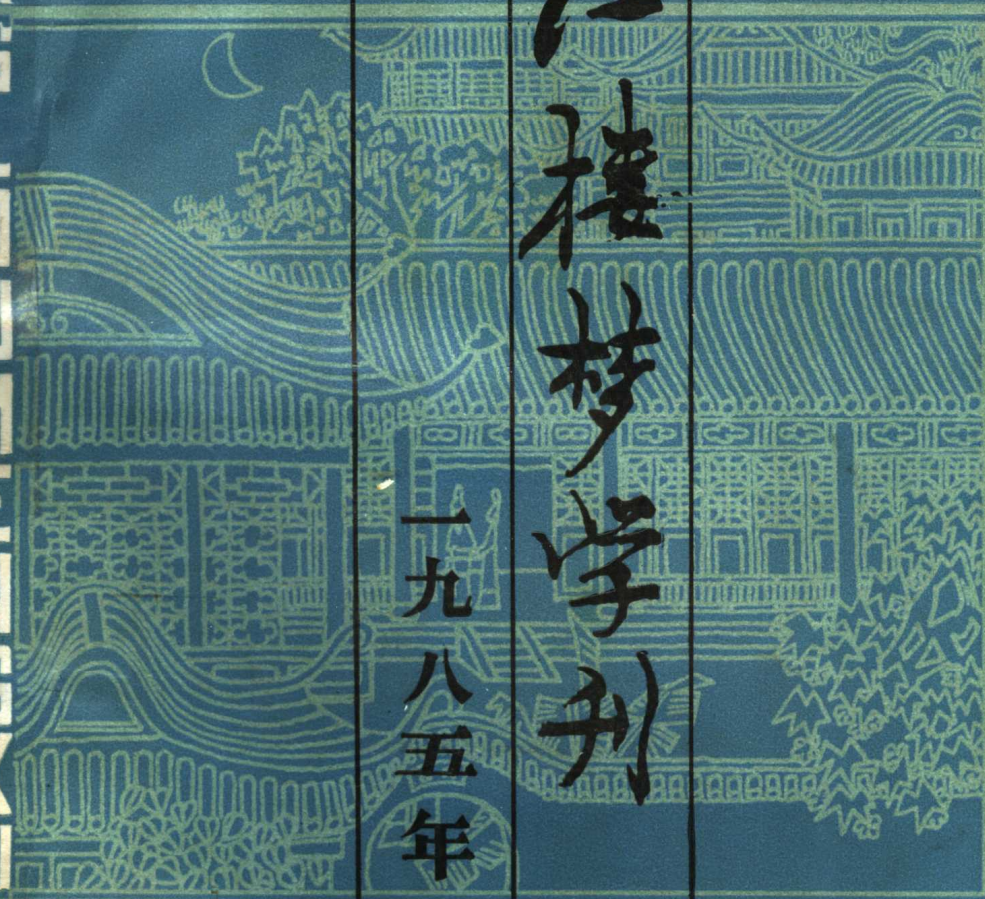 楼梦学刊
一九八五年